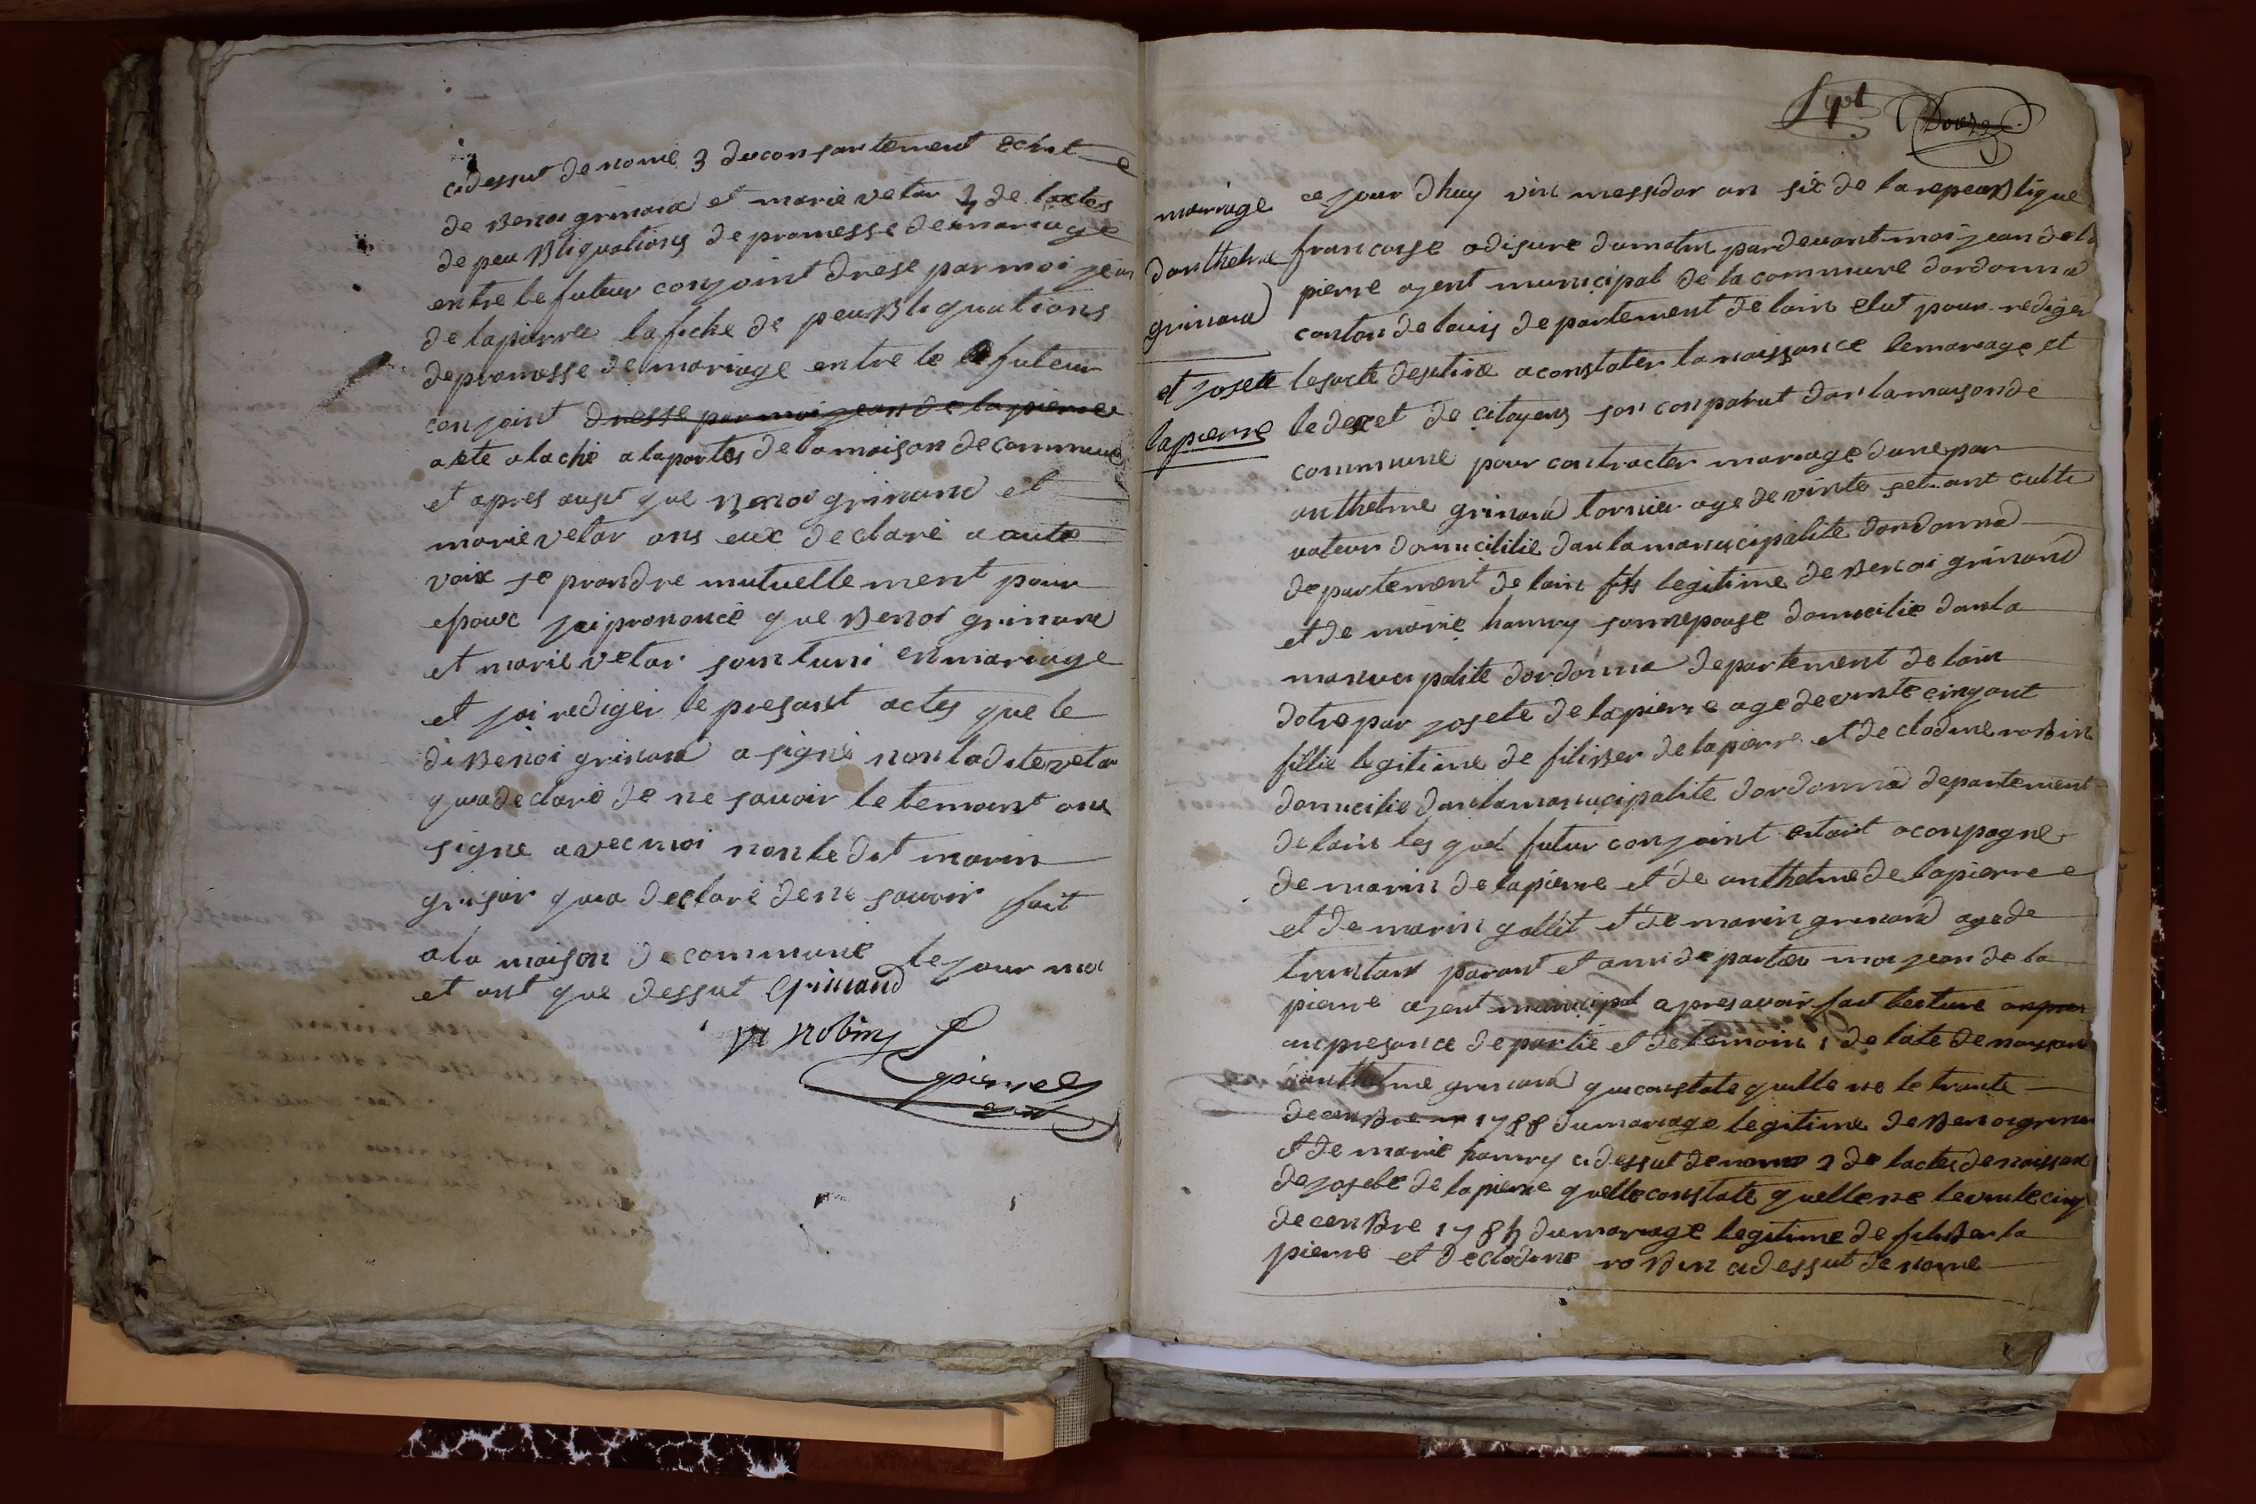 cidessut de nome 3 du consantement ecint
de Benoi grinand et marie vetar 4 de lactes
de peu Bliquations de promesse de mariage
entre le futeur conjoint drese par moi jean
de lapierre lafiche de peu Bliquations
de promesse de mariage entre le futeur
conjoint dresse par moi jean de lapierre
a ete atache a laportes de la maison de commune
et apres ausit que Benoi grinand et
marie vetar ons eux declaré a aute
voix se prandre mutuellement pour
epoux jai prononcé que Benoi grinand
et marie vetar sont uni en mariage
et jai rediger le presant actes que le
di Benoi grinand a signé non ladite vetar
qua declaré de ne savoir le temoint ons
signe avec moi non le dit marin
grisar qua declaré de ne savoir fait
a la maison de commune le jour moi
et ant que dessut Grinand
M Robin
Lapierre
Sept Douze
mariage
danthelme
grinand
et josette
lapierre
ce jour dhuy vin messidor an six de la repeu Blique
francoise a disure du matin par devant moi jean de la
pierre agent municipal de la commune dordonna
canton de département de lain elut pour rediger
lesacte destine a constater la naissance le mariage et
le deset de citoyens son conparut dan la maison de
commune pour contracter mariage dune par
anthelme grinand tornier age de vinte set ant culti
vateur domicililie dan la manucipalite dordonna
departement de lain fils legitime de Benoi grinand
et de marie hamry sonnepouse domicilie dan la
manucipalite dordonna departement de lain
dotre par josete de lapierre age de vinte cinq ant
fillie legitime de filiBer de lapierre et de clodine roBin
domicilie dan la manucipalite dordonna departement
de lain les quel futur conjoint etait aconpagne
de marin de lapierre et de anthelme de lapierre
et de marin gallit et de marin grinand age de
trantant parant et ami de parter moi jean de la
pierre agent municipal apres avoir fait lecture
an presance de partie et de temoin 1 de late de naissan
danthelme grinand qui constate quille ne le trante
decenBre 1788 du mariage legitime de Benoi grinan
et de marie hamry cidessut de nome 2 de lactes de naissan
de josete de lapierre quelle constate quelle ne le vinte cinq
decenBre 178 du mariage legitime de filiBer la
pierre et de clodine roBin cidessut de nome